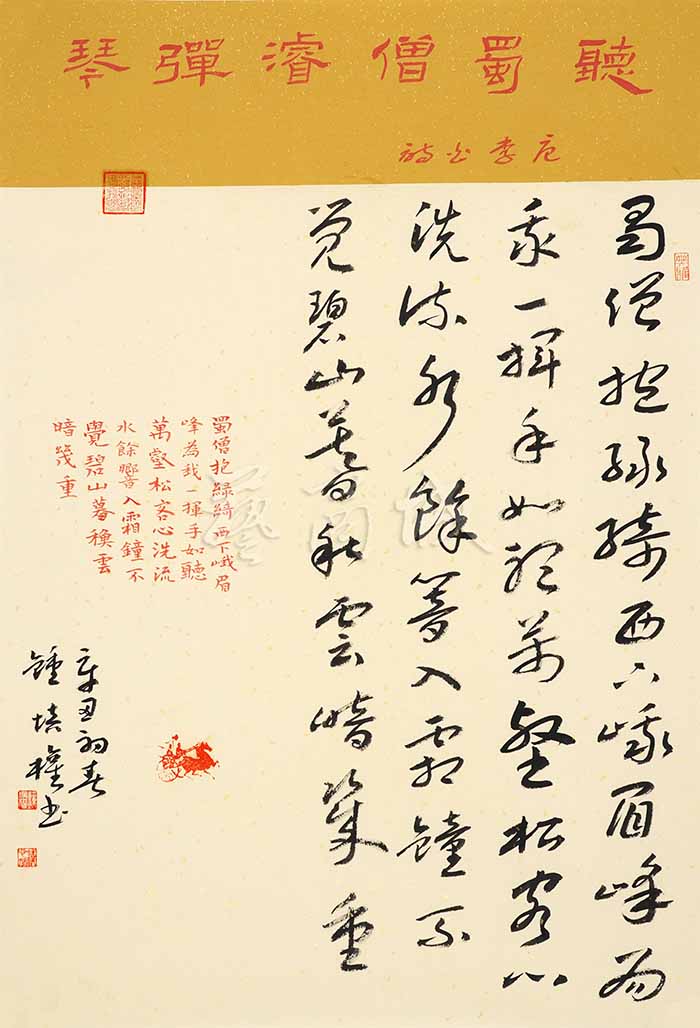 聽蜀僧濬彈琴
唐李白詩
蜀僧抱綠綺西下峨眉峰為
我一揮手如聽萬壑松客心
洗流水餘響入霜鐘不
覺碧山暮秋雲暗幾重
蜀僧抱綠綺西下峨眉
峰為我一揮手如聽
萬壑松客心洗流
水餘響入霜鐘不
覺碧山暮穐雲
暗幾重
辛丑初春
鍾培權書